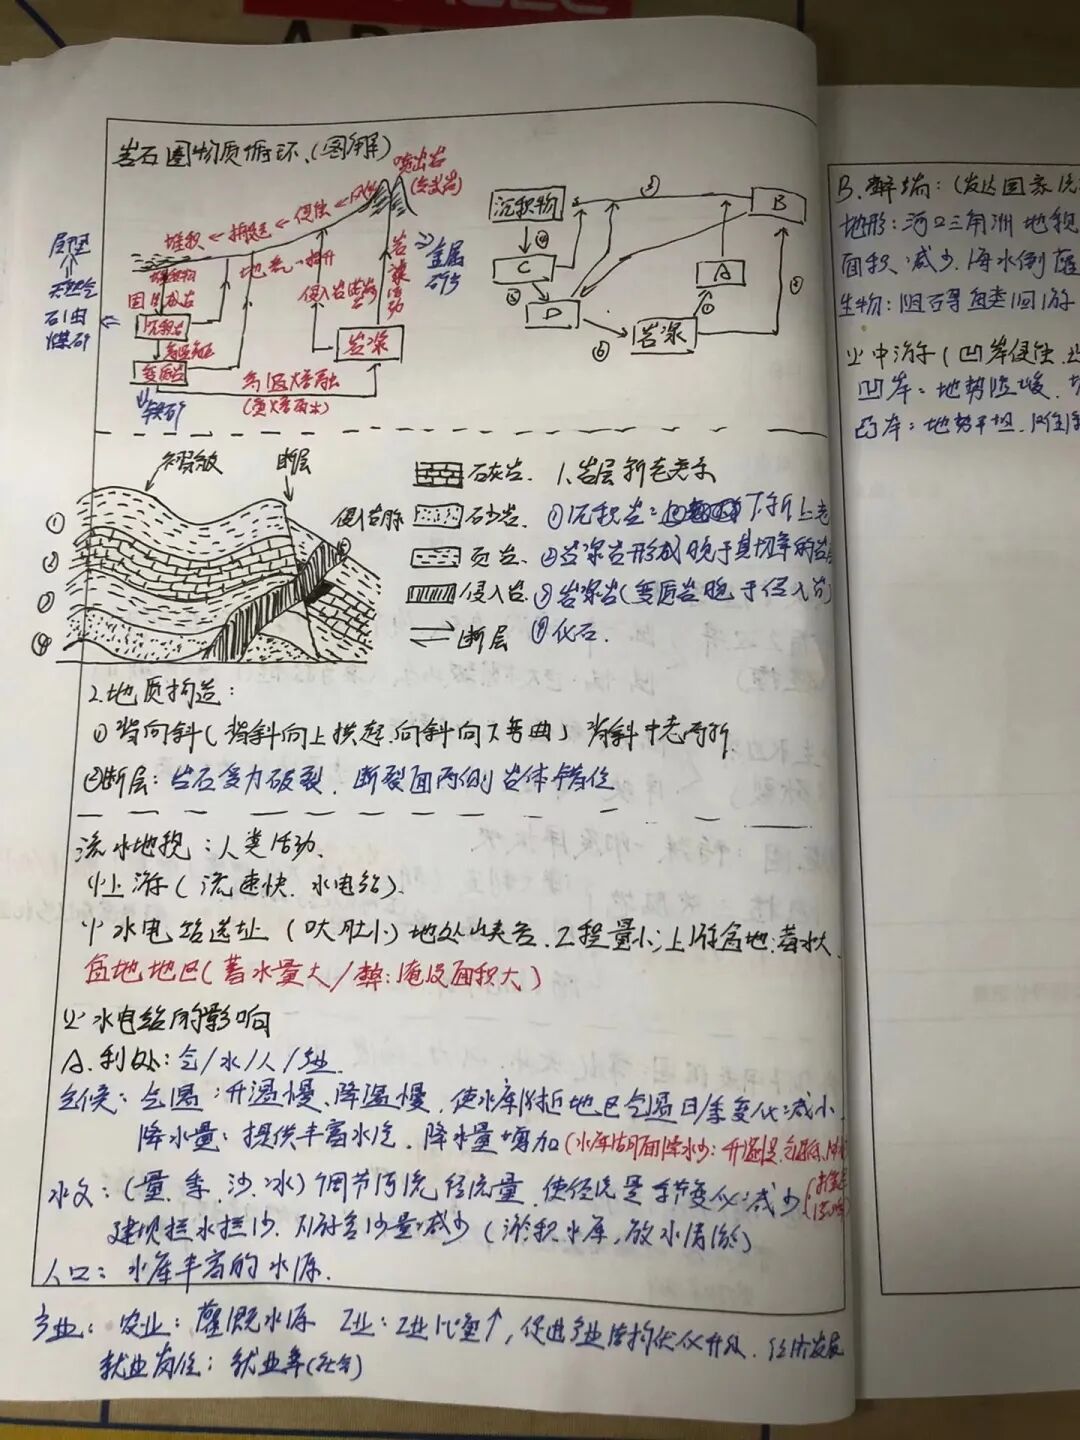 岩石圈物质循环.(图解)
喷出岩
堆积 ← 搬运 ← 侵蚀 ←
地壳抬升
固结成岩
沉积岩
变质岩
铁矿
天然气
石油
煤矿
岩浆活动
金属矿
侵入岩
岩浆
高温熔融
(重熔再生)
沉积物
③
B
④
C
A
⑤
D
①
⑥
岩浆
褶皱
断层
①
②
③
④
侵入岩脉
石灰岩. 1.岩层新老关系
石砂岩. ①沉积岩: 下新上老
页岩. ②岩浆岩形成晚于其切穿的岩层
侵入岩. ③岩浆岩(变质岩晚于侵入岩)
断层 ④化石.
2.地质构造:
①背向斜(背斜向上拱起.向斜向下弯曲) 背斜中老两新.
②断层: 岩石受力破裂. 断裂面两侧岩体错位
流水地貌: 人类活动.
(1)上游(流速快. 水电站).
(1)水电站选址 (口大肚小) 地处峡谷.工程量小;上游盆地:蓄水大.
盆地地区(蓄水量大/弊:淹没面积大)
(2)水电站的影响
A.利处: 气/水/人/产业.
气候: 气温: 升温慢、降温慢. 使水库附近地区气温日/季变化减小.
降水量: 提供丰富水汽. 降水量增加
水文: (量.季.沙.冰) 调节河流径流量. 使径流量季节变化减少
建坝拦水拦沙. 下游含沙量减少 (淤积水库,放水清淤)
人口: 水库丰富的水源.
产业: 农业: 灌溉水源 工业: 工业比重↑, 促进产业结构优化升级. 经济发展
就业岗位: 就业率(社会)
B.弊端: (发达国家
地形: 河口三角洲地貌
面积减少.海水倒灌
生物: 阻碍鱼类洄游
(2)中游 (凹岸侵蚀.
凹岸: 地势陡峻.
凸岸: 地势平坦.